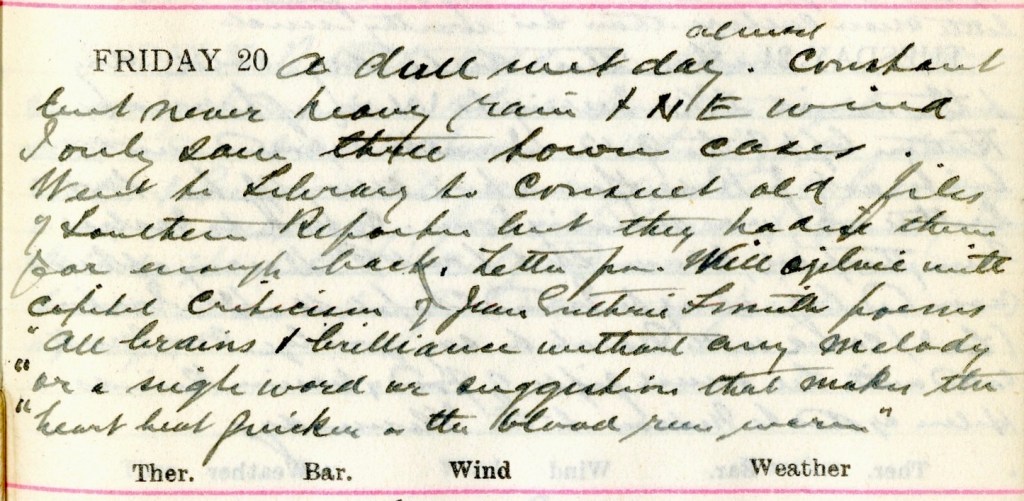 almost
FRIDAY 20 A dull wet day. Constant
but never heavy rain & N E wind
I only saw three town cases.
Went to Library to consult old files
of Southern Reporter but they hadn't them
far enough back. Letter from Will Ogilvie with
capital criticism of Jean Guthrie Smith poems
"All brains & brilliance without any melody
"or a single word or suggestion that makes the
"heart beat quicker or the blood run warm"
Ther. Bar. Wind Weather